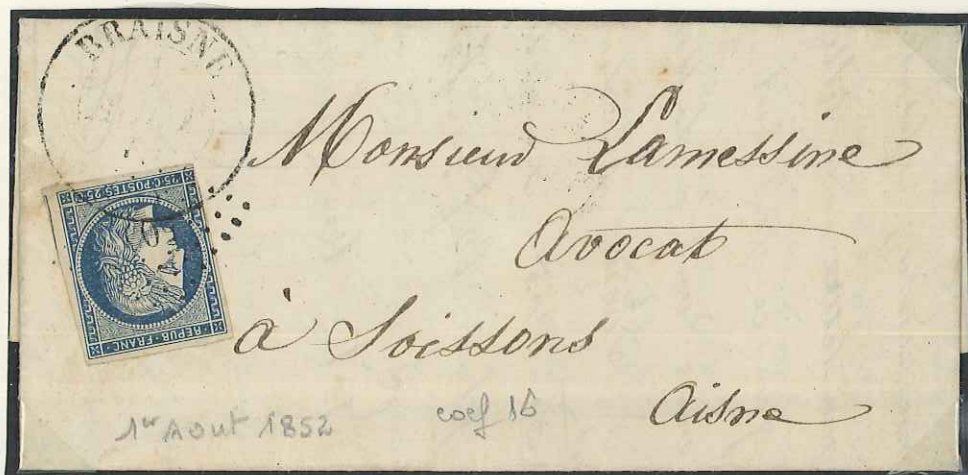 BRAISNE
25C·POSTES·25C
REPUB·FRANC
Monsieur Lamessine
Avocat
à Soissons
Aisne
1er Aout 1852
coef 16